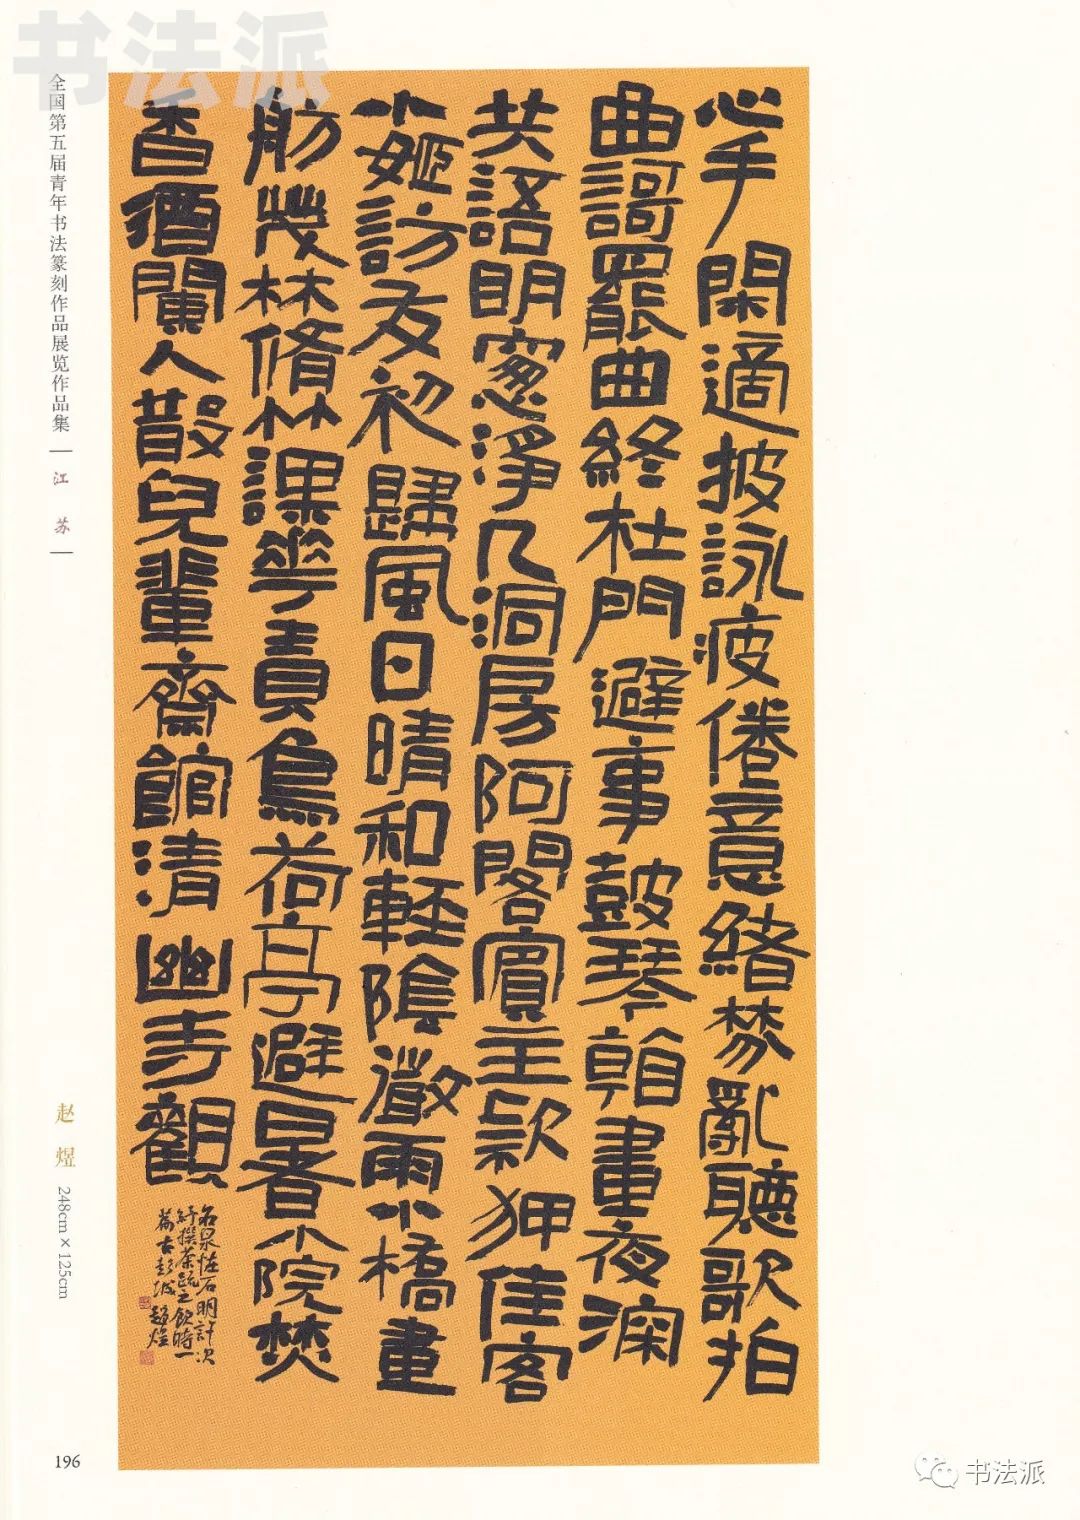 书法派
全国第五届青年书法篆刻作品展览作品集
江 苏
心手閑適披詠疲倦意緒棼亂聽歌拍
曲謌罷曲終杜門避事鼓琴看畫夜深
共語明窻淨几洞房阿閣賓主款狎佳客
小姬訪友初歸風日晴和輕陰微雨小橋畫
舫茂林脩竹課華責鳥荷亭避暑小院焚
香酒闌人散兒輩齋館清幽寺觀
名泉怪石明許次
紓撰茶疏之飲時一
篇古彭城趙煜
赵 煜 248cm×125cm
196
书法派